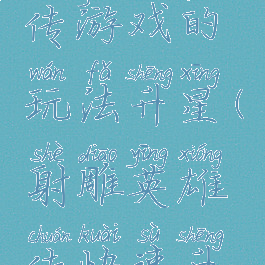 传游戏的
wán fǎ shēng xīng
玩法升星(
shè diāo yīng xióng
射雕英雄
chuán kuài sù shēng
传快速升